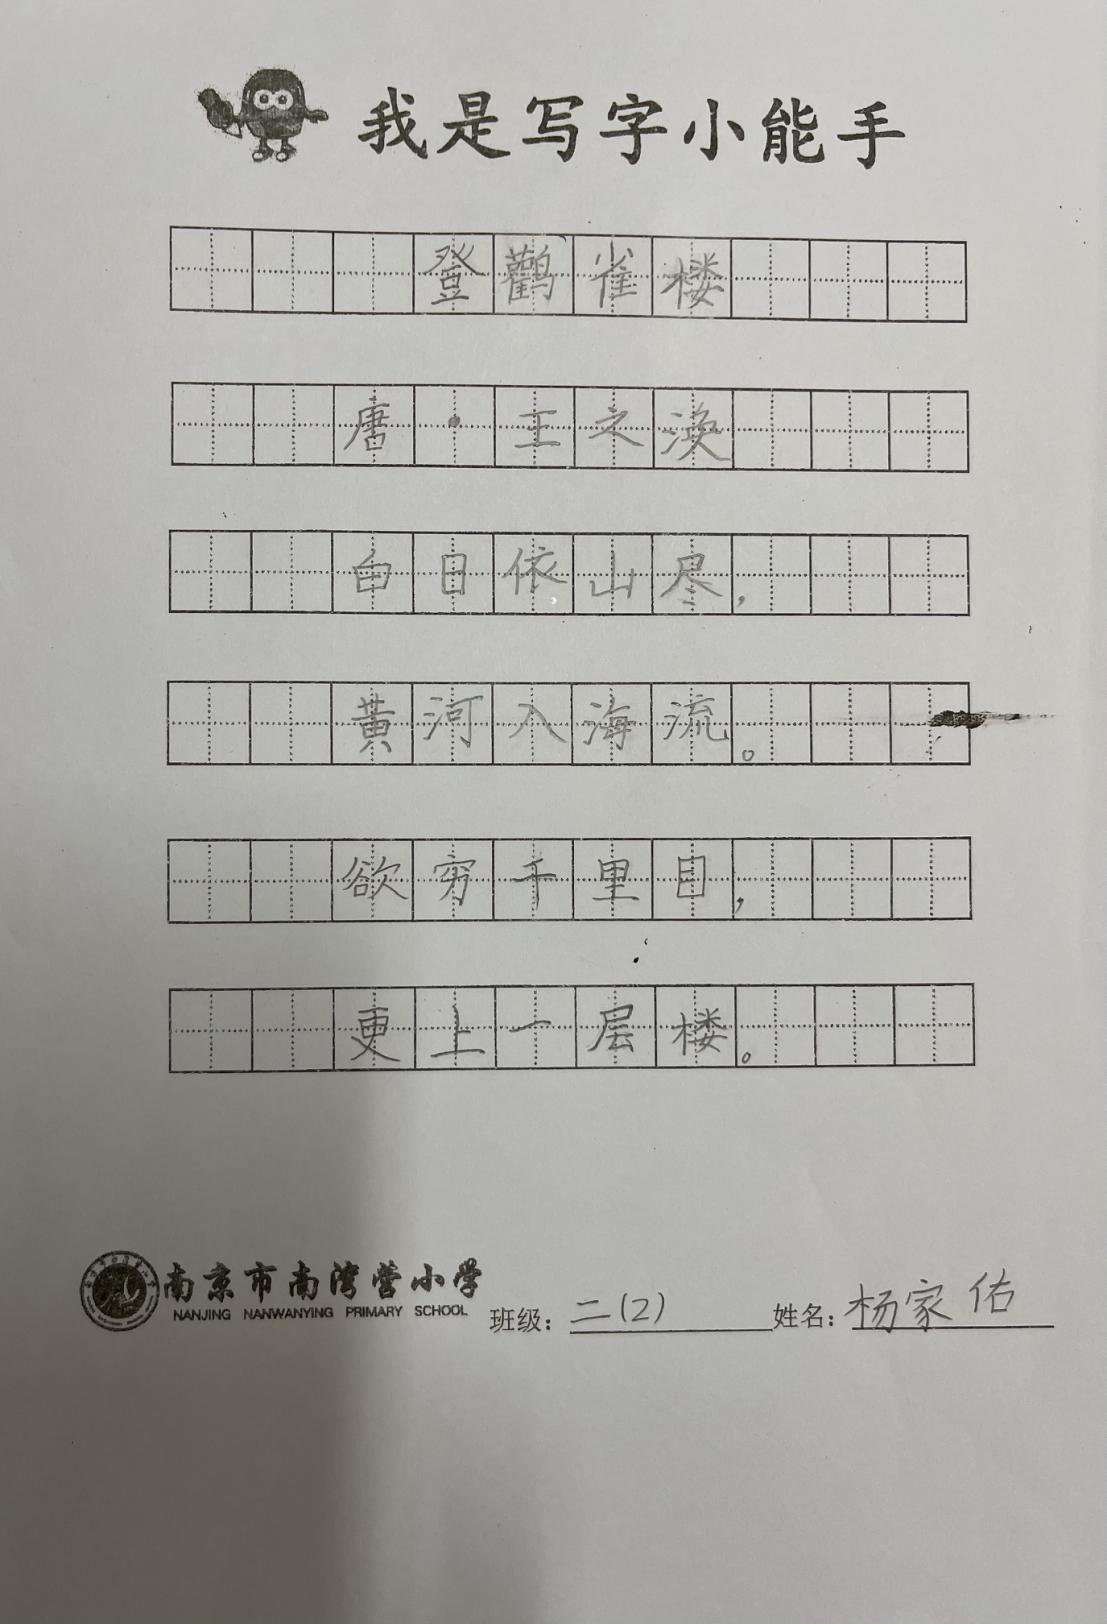 我是写字小能手
登鸛雀楼
唐·王之涣
白日依山尽，
黄河入海流。
欲穷千里目，
更上一层楼。
南京市南湾营小学
NANJING NANWANYING PRIMARY SCHOOL
班级：二(2) 姓名：杨家佑